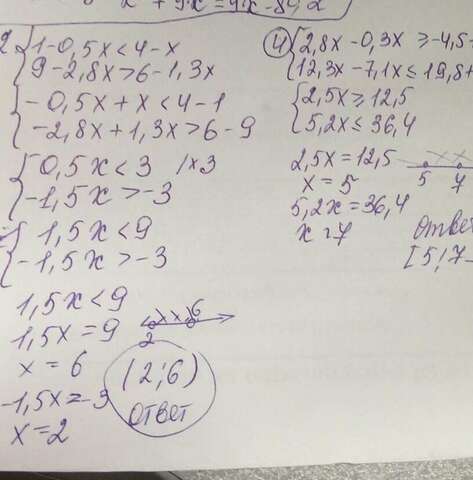 2 { 1-0,5x<4-x
9-2,8x>6-1,3x
{ -0,5x+x<4-1
-2,8x+1,3x>6-9
{ 0,5x<3 /x3
-1,5x>-3
{ 1,5x<9
-1,5x>-3
1,5x<9
1,5x=9
x=6
-1,5x=-3
x=2
2 xx 6
(2;6)
ответ
4 { 2,8x-0,3x≥-4,5-
12,3x-7,1x≤19,8+
{ 2,5x≥12,5
5,2x≤36,4
2,5x=12,5
x=5
5,2x=36,4
x=7
xx
5 7
Ответ
[5;7